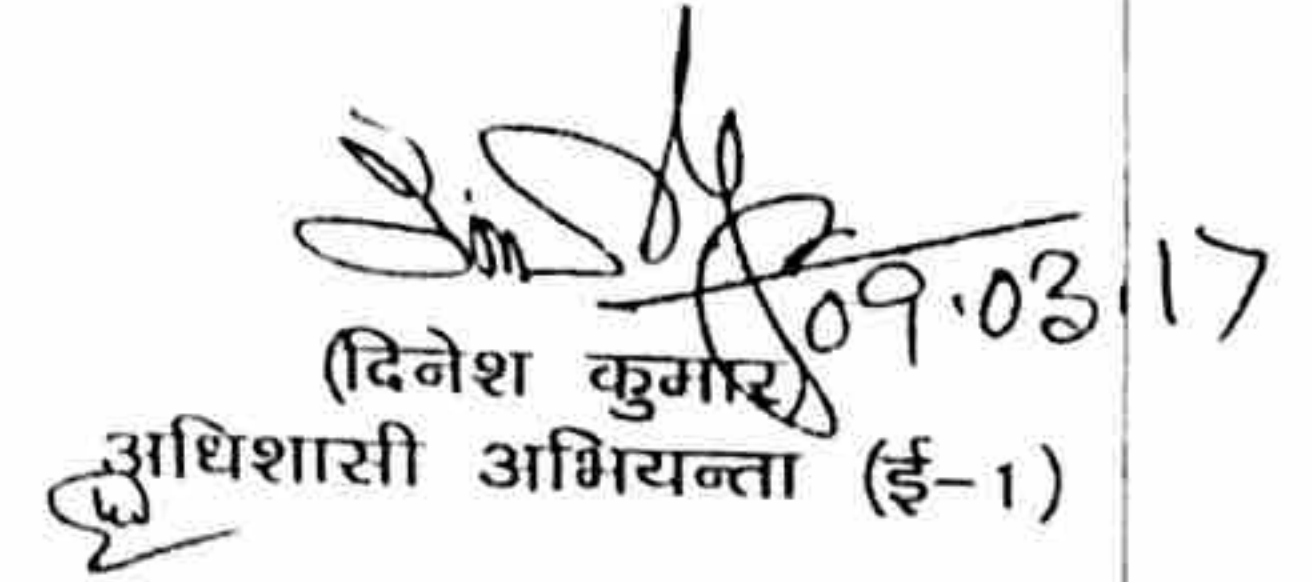 09.03.17
(दिनेश कुमार)
अधिशासी अभियन्ता (ई-1)